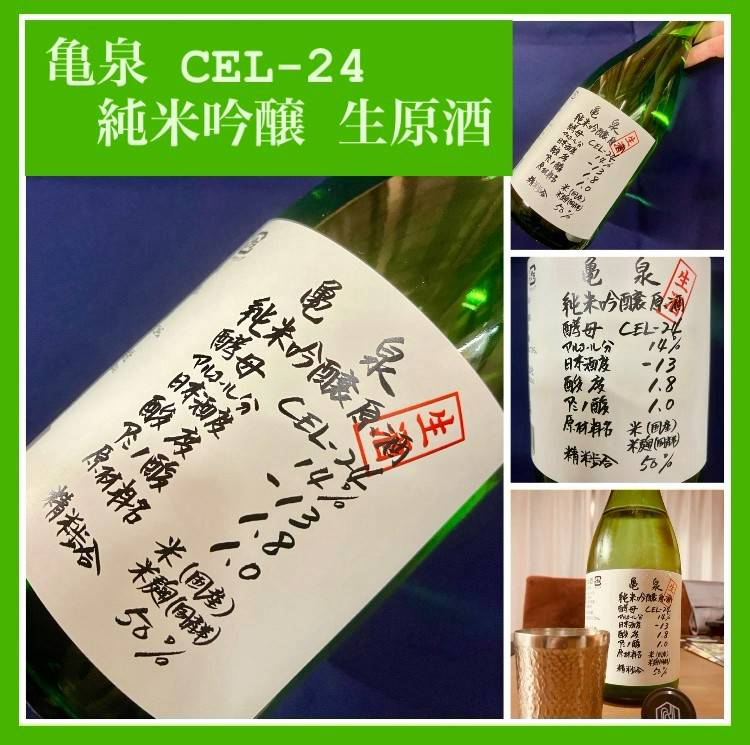 亀泉 CEL-24
純米吟醸 生原酒
亀泉
純米吟醸原酒
生酒
酵母 CEL-24
アルコール分 14%
日本酒度 -13
酸度 1.8
アミノ酸 1.0
原材料名 米(国産)
米麹(国産米)
精米歩合 50%
亀泉
純米吟醸原酒
生酒
酵母 CEL-24
アルコール分 14%
日本酒度 -13
酸度 1.8
アミノ酸 1.0
原材料名 米(国産)
米麹(国産米)
精米歩合 50%
亀泉
純米吟醸原酒
生酒
酵母 CEL-24
アルコール分 14%
日本酒度 -13
酸度 1.8
アミノ酸 1.0
原材料名 米(国産)
米麹(国産米)
精米歩合 50%
亀泉
純米吟醸原酒
生酒
酵母 CEL-24
アルコール分 14%
日本酒度 -13
酸度 1.8
アミノ酸 1.0
原材料名 米(国産)
米麹(国産米)
精米歩合 50%